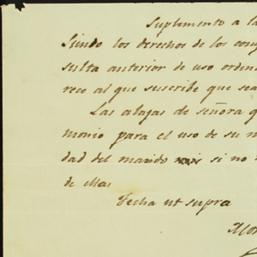 Suplemento a la
Siendo los derechos de los con
sulta anterior de uso ordin
rece al que suscribe que sea
Las alajas de señora q
monio para el uso de su m
dad del marido si no
de ellas
Fecha ut supra